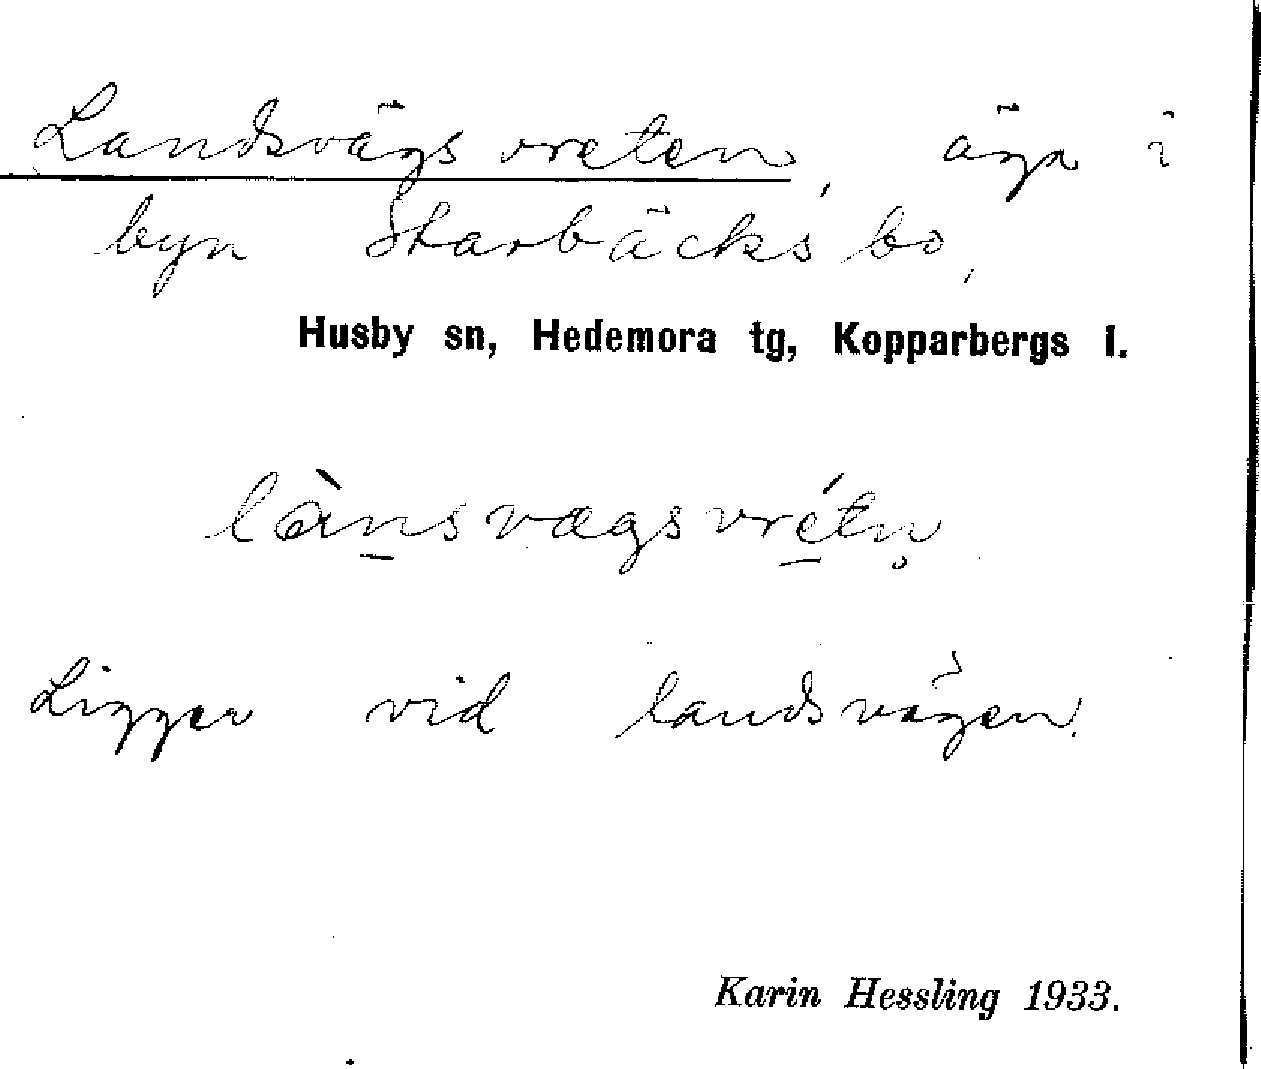 Landsvägsvreten, äga i
byn Starbäcksbo,
Husby sn, Hedemora tg, Kopparbergs l.
là̱nsvægsvré̱tn̥
Ligger vid landsvägen.
Karin Hessling 1933.